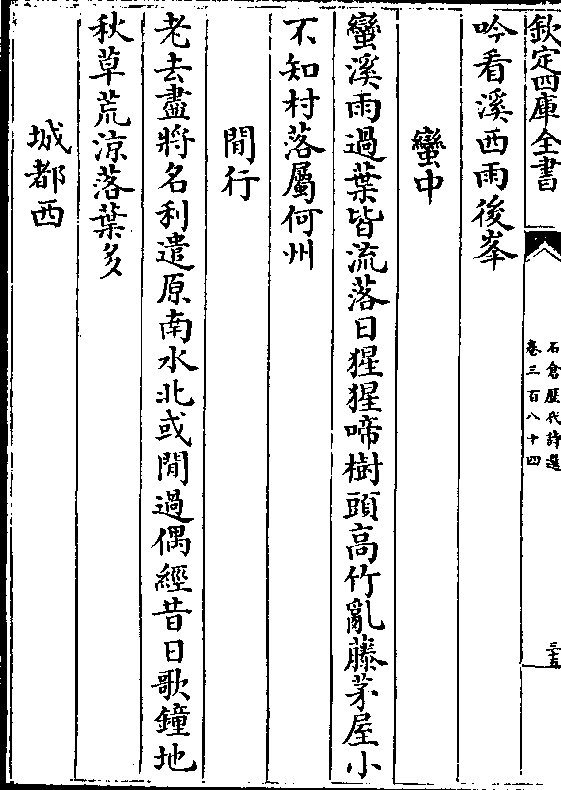 欽定四庫全書
石倉歷代詩選
卷三百八十四
三十五
吟看溪西雨後峯
蠻中
蠻溪雨過葉皆流落日猩猩啼樹頭高竹亂藤茅屋小
不知村落屬何州
閒行
老去盡將名利遣原南水北或閒過偶經昔日歌鐘地
秋草荒涼落葉多
城都西